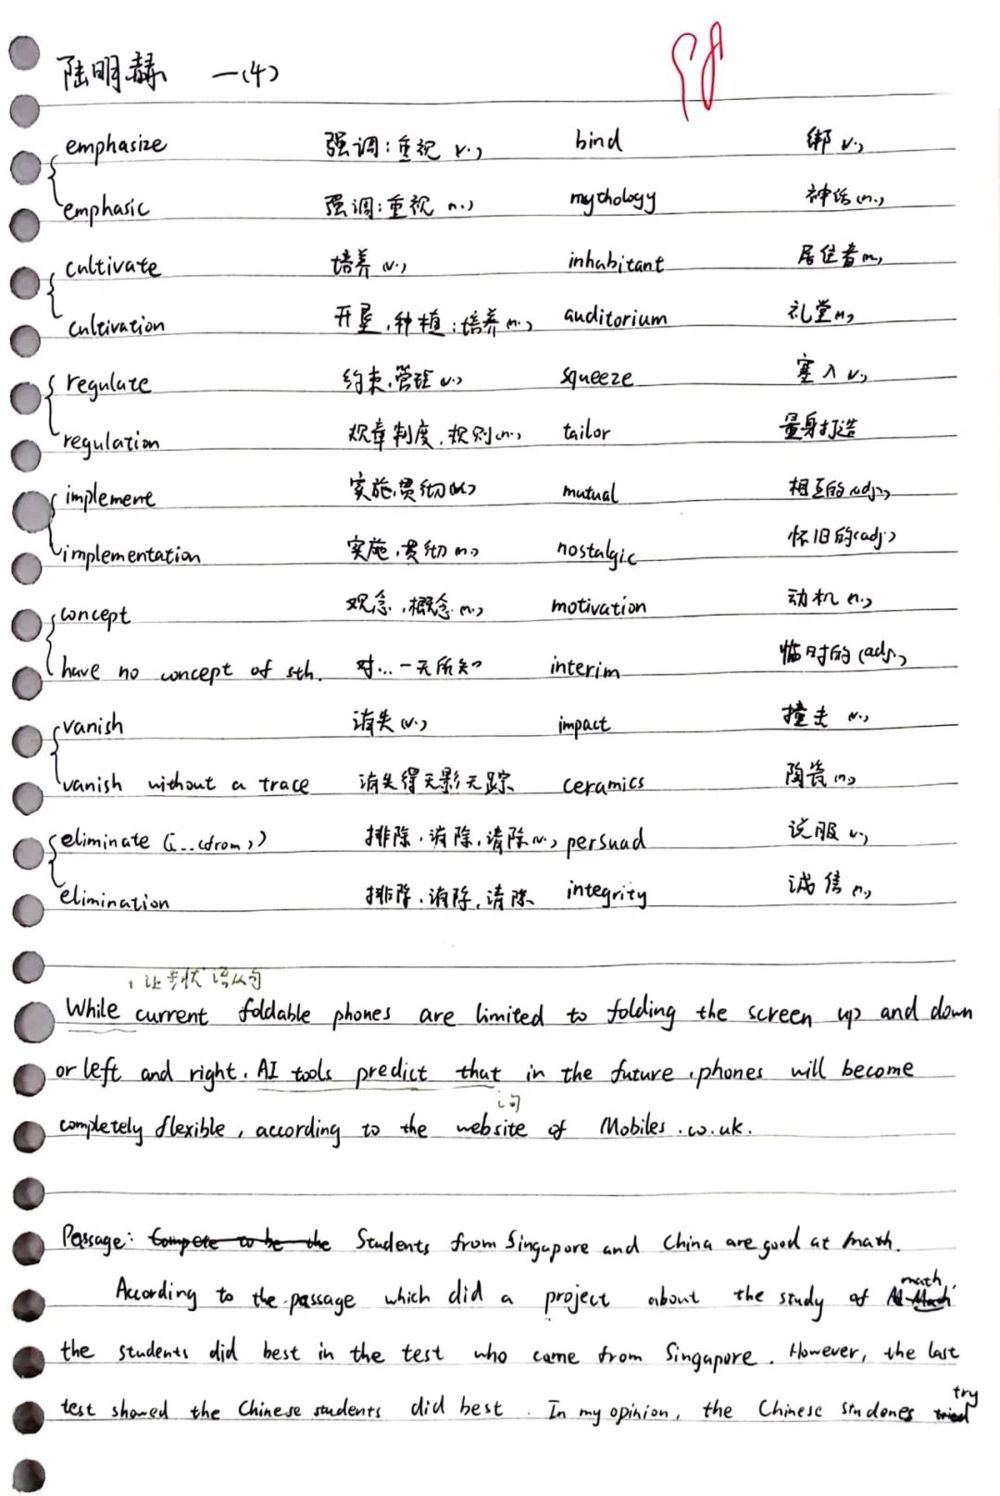 陆明赫 一(4)
98
emphasize 强调;重视 (v.) bind 绑 (v.)
emphasic 强调;重视 (n.) mythology 神话 (n.)
cultivate 培养 (v.) inhabitant 居住者 (n.)
cultivation 开垦,种植;培养 (n.) auditorium 礼堂 (n.)
regulate 约束,管理 (v.) squeeze 塞入 (v.)
regulation 规章制度,规则 (n.) tailor 量身打造
implement 实施,贯彻 (v.) mutual 相互的 (adj.)
implementation 实施,贯彻 (n.) nostalgic 怀旧的 (adj.)
concept 观念,概念 (n.) motivation 动机 (n.)
have no concept of sth. 对...一无所知 interim 临时的 (adj.)
vanish 消失 (v.) impact 撞击 (v.)
vanish without a trace 消失得无影无踪 ceramics 陶瓷 (n.)
eliminate (... (from)) 排除,消除,清除 (v.) persuad 说服 (v.)
elimination 排除,消除,清除 integrity 诚信 (n.)
让步状语从句
While current foldable phones are limited to folding the screen up and down
or left and right. AI tools predict that in the future, phones will become
句
completely flexible, according to the website of Mobiles.co.uk.
Passage: Compete to be the Students from Singapore and China are good at math.
According to the passage which did a project about the study of math,
the students did best in the test who came from Singapore. However, the last
test showed the Chinese students did best. In my opinion, the Chinese studenes try